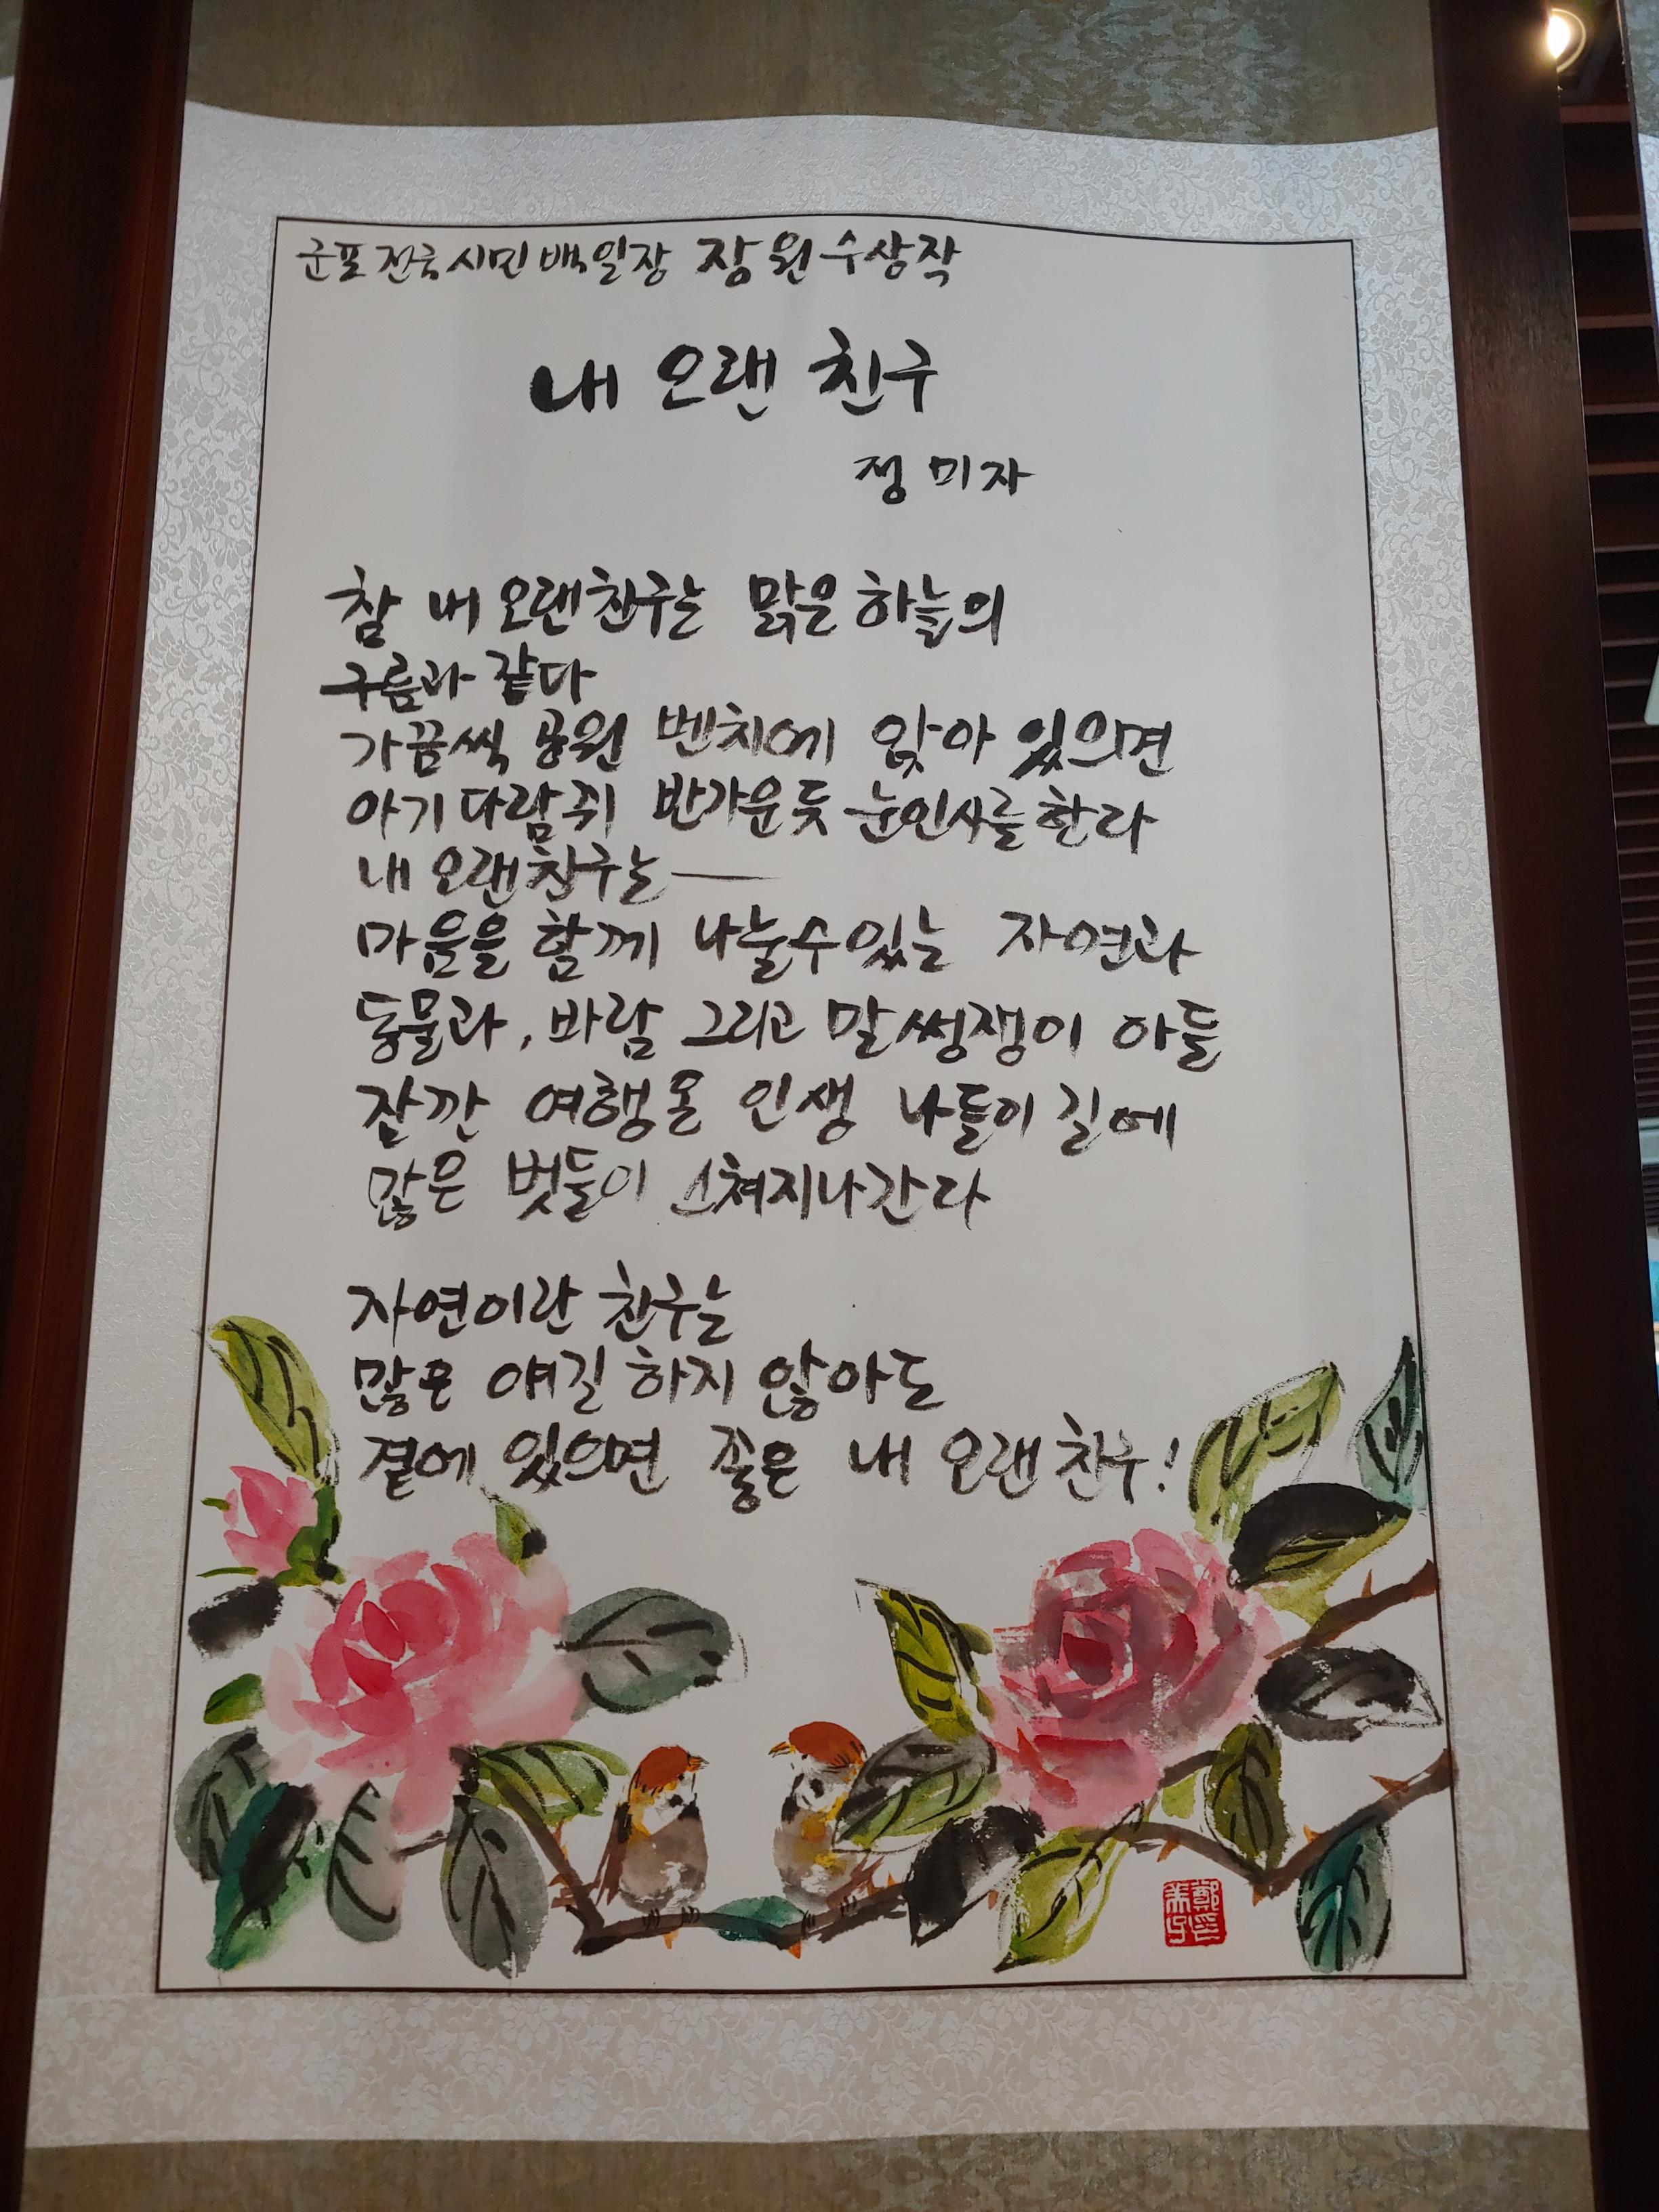 군포 전국 시민 백일장 장원 수상작
내 오랜 친구
정 미 자
참 내 오랜친구는 맑은 하늘의
구름과 같다
가끔씩 공원 벤치에 앉아 있으면
아기 다람쥐 반가운듯 눈인사를 한다
내 오랜친구는 ―
마음을 함께 나눌수있는 자연과
동물과, 바람 그리고 말썽쟁이 아들
잠깐 여행온 인생 나들이 길에
많은 벗들이 스쳐지나간다
자연이란 친구는
많은 얘길 하지 않아도
곁에 있으면 좋은 내 오랜친구!
鄭印
美子